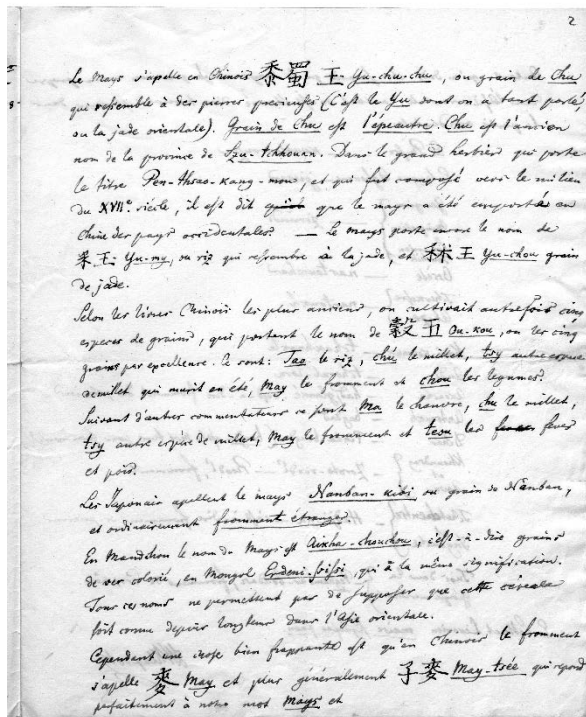 2
Le Mays s'apelle en Chinois 黍蜀王 Yu-chu-chu, ou grain de Chu
qui ressemble à des pierres precieuses (C'est le Yu dont on a tant parlé,
ou la jade orientale). Grain de Chu est l'épeautre. Chu est l'ancien
nom de la province de Szu-tchhouan. Dans le grand herbier qui porte
le titre Pen-thsao-kang-mou, et qui fut composé vers le milieu
du XVIIe siècle, il est dit que le mays a été emporté en
Chine des pays occidentales. — Le mays porte encore le nom de
米王 Yu-my, ou riz qui ressemble à la jade, et 秫王 Yu-chou grain
de jade.
Selon les livres Chinois les plus anciens, on cultivait autrefois cinq
especes de grains, qui portent le nom de 穀五 Ou-kou, ou les cinq
grains par excellence. Ce sont: Tao le riz, chú le millet, tsy autre espece
de millet qui murit en été, May le fromment et chou les legumes.
Suivant d'autres commentateurs ce sont Ma le chanvre, chu le millet,
tsy autre espèce de millet, May le fromment et teou les feves
et pois.
Les Japonais apellent le mays Nanban-kibi ou grain de Nanban,
et ordinairement fromment étranger.
En Mandchou le nom du Mays est Aikha-chouchou, c'est-à-dire grains
de ver colorié, en Mongol Erdeni-sissi, qui à la même signification.
Tous ces noms ne permettent pas de supposer que cette céréale
soit connu depuis longtems dans l'Asie orientale.
Cependant une chose bien frappante est qu'en Chinois le fromment
s'apelle 麥 May et plus généralement 子麥 May-tsée qui repond
parfaitement à notre mot mays et